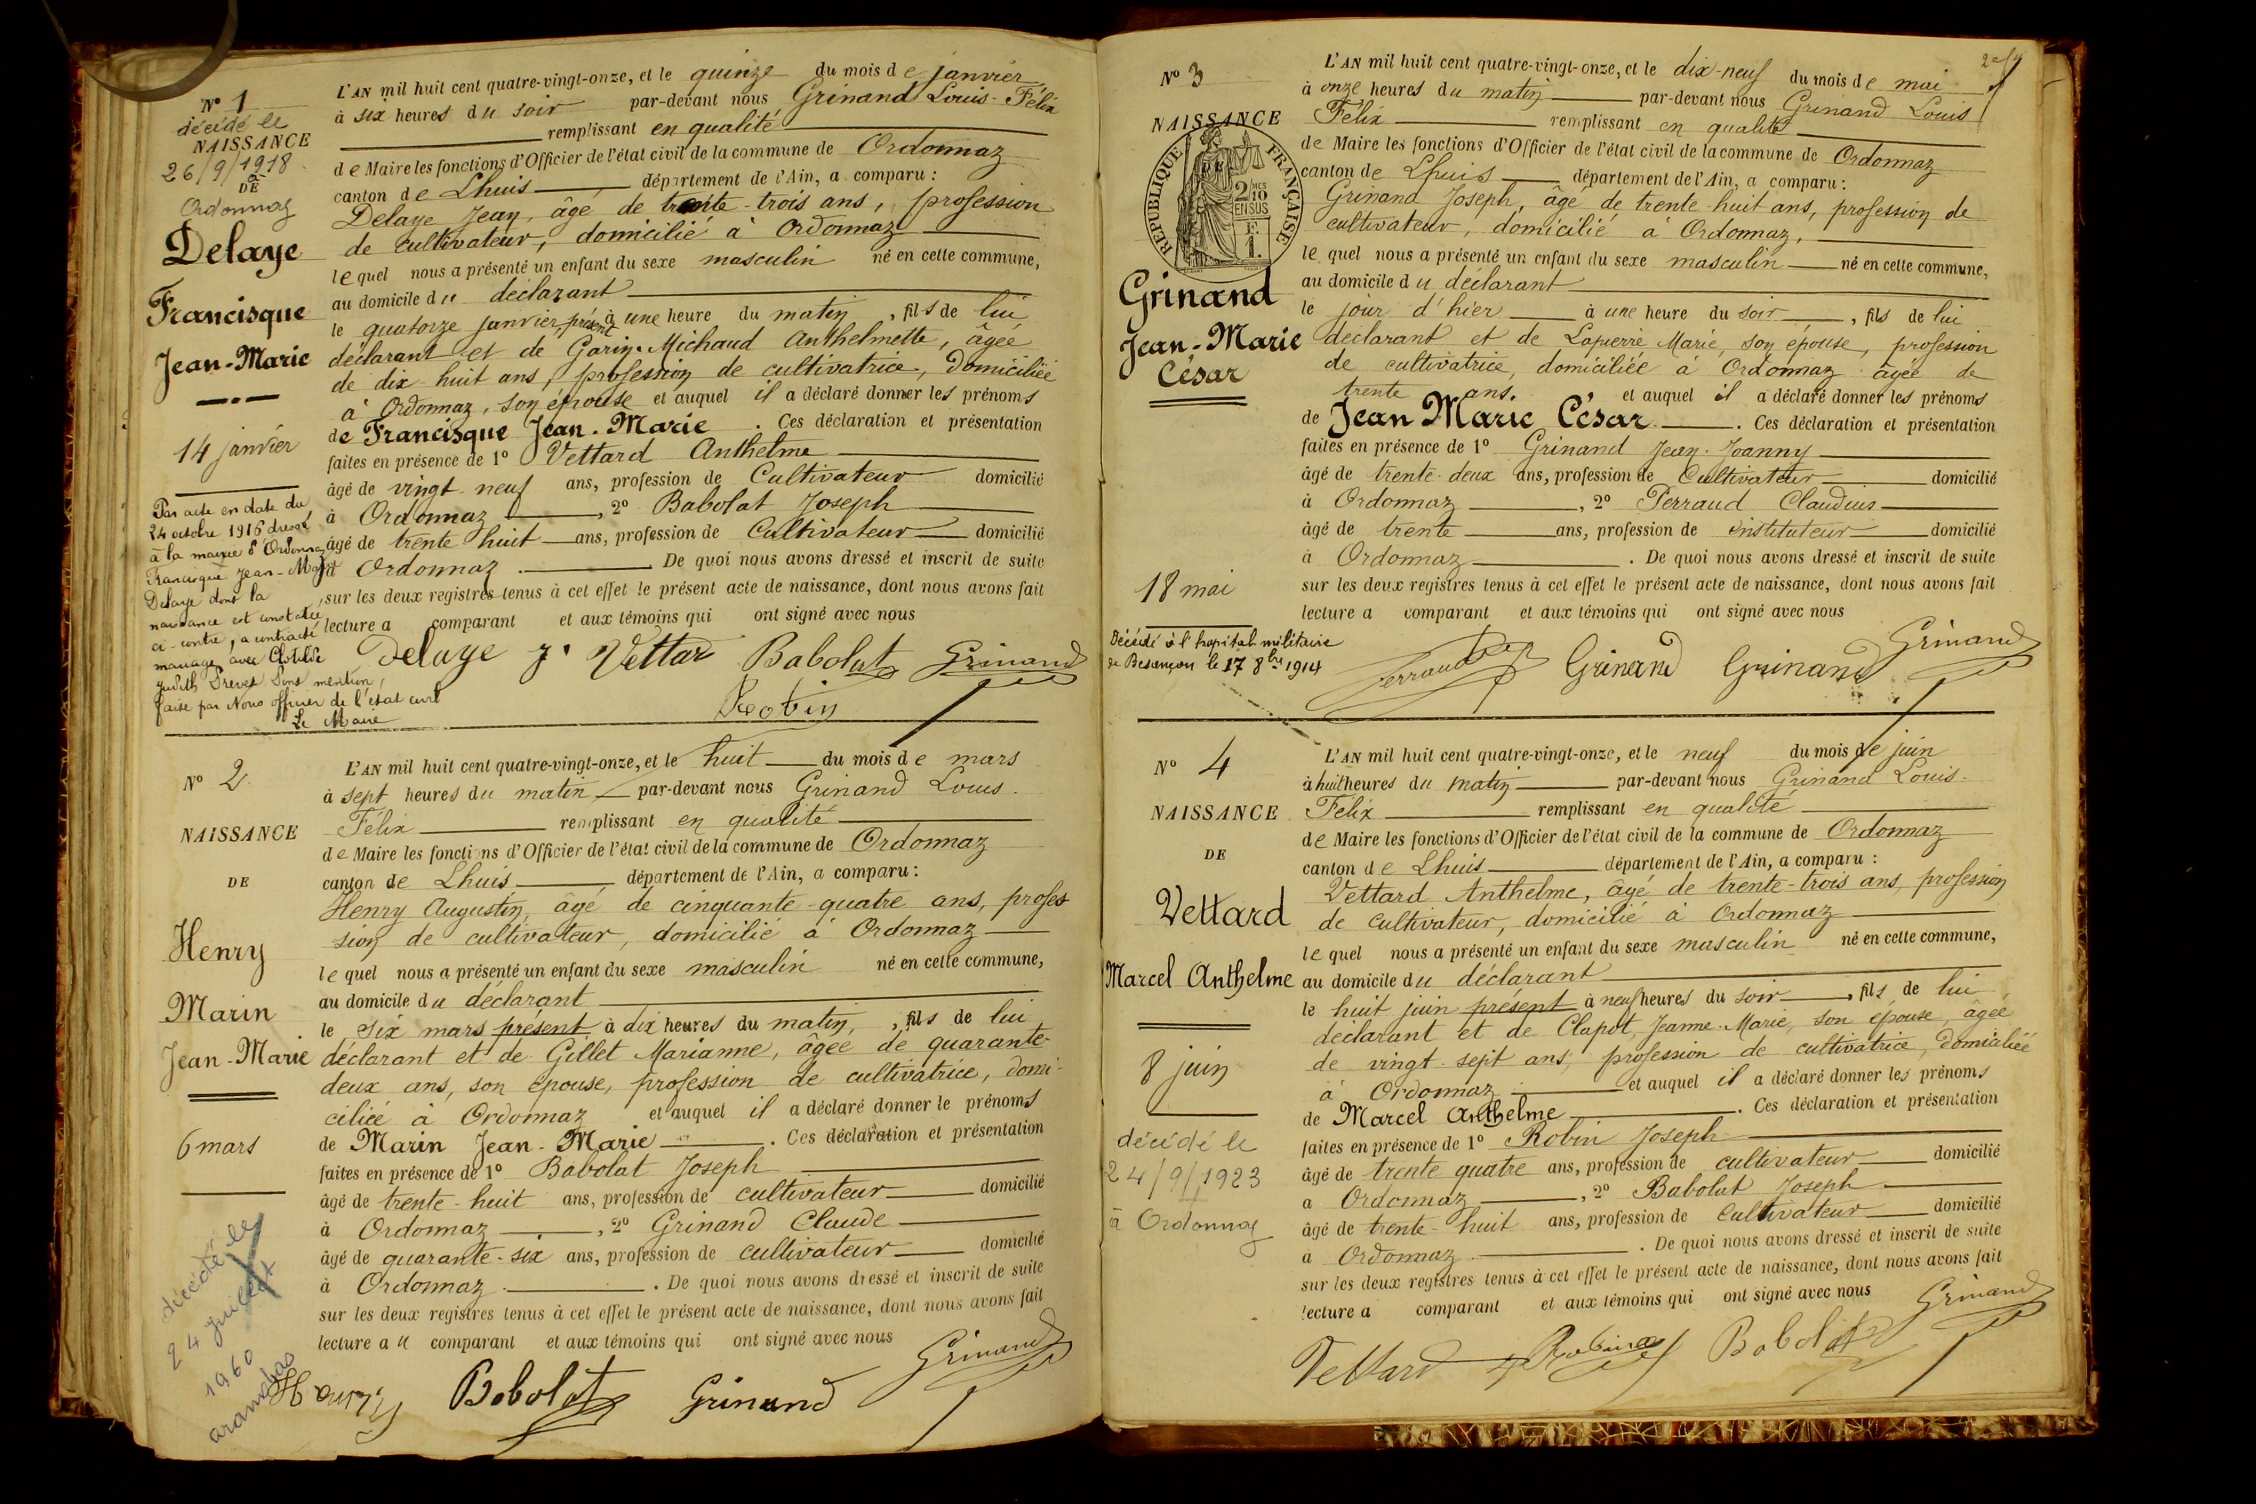 Nº 1
décédé le
NAISSANCE
26/9/1918
à
DE
Ordonnaz
Delaye
Francisque
Jean-Marie
14 janvier
Par acte en date du
24 octobre 1916 dressé
à la mairie d'Ordonnaz
Francisque Jean-Marie
Delaye dont la
naissance est constatée
ci-contre, a contracté
mariage avec Clotilde
Judith Dont mention
faite par Nous officier de l'état civil
Le Maire
L'AN mil huit cent quatre-vingt-onze, et le quinze du mois de janvier
à six heures du soir par-devant nous Grinand Louis-Félix
remplissant en qualité
de Maire les fonctions d'Officier de l'état civil de la commune de Ordonnaz
canton de Lhuis département de l'Ain, a comparu :
Delaye Jean, âgé de trente-trois ans, profession
de cultivateur, domicilié à Ordonnaz
lequel nous a présenté un enfant du sexe masculin né en cette commune,
au domicile du déclarant
le quatorze janvier présent à une heure du matin, fils de lui
déclarant et de Garin-Michaud Anthelmette, âgée
de dix-huit ans, profession de cultivatrice, domiciliée
à Ordonnaz, son épouse et auquel il a déclaré donner les prénoms
de Francisque Jean-Marie. Ces déclaration et présentation
faites en présence de 1º Vettard Anthelme
âgé de vingt-neuf ans, profession de Cultivateur domicilié
à Ordonnaz, 2º Babolat Joseph
âgé de trente huit ans, profession de Cultivateur domicilié
à Ordonnaz. De quoi nous avons dressé et inscrit de suite
sur les deux registres tenus à cet effet le présent acte de naissance, dont nous avons fait
lecture a comparant et aux témoins qui ont signé avec nous
Delaye J. Vettard Babolat Grinand
Robin
Nº 2
NAISSANCE
DE
Henry
Marin
Jean-Marie
6 mars
décédé le
24 juillet
1960
arandas
L'AN mil huit cent quatre-vingt-onze, et le huit du mois de mars
à sept heures du matin par-devant nous Grinand Louis-
Félix remplissant en qualité
de Maire les fonctions d'Officier de l'état civil de la commune de Ordonnaz
canton de Lhuis département de l'Ain, a comparu :
Henry Augustin, âgé de cinquante-quatre ans, profes
sion de cultivateur, domicilié à Ordonnaz
lequel nous a présenté un enfant du sexe masculin né en cette commune,
au domicile du déclarant
le six mars présent à dix heures du matin, fils de lui
déclarant et de Gillet Marianne, âgée de quarante-
deux ans, son épouse, profession de cultivatrice, domi-
ciliée à Ordonnaz et auquel il a déclaré donner le prénoms
de Marin Jean-Marie. Ces déclaration et présentation
faites en présence de 1º Babolat Joseph
âgé de trente-huit ans, profession de cultivateur domicilié
à Ordonnaz, 2º Grinand Claude
âgé de quarante-six ans, profession de cultivateur domicilié
à Ordonnaz. De quoi nous avons dressé et inscrit de suite
sur les deux registres tenus à cet effet le présent acte de naissance, dont nous avons fait
lecture au comparant et aux témoins qui ont signé avec nous
Henry Babolat Grinand Grinand
Nº 3
NAISSANCE
RÉPUBLIQUE FRANÇAISE
2/10 MES
EN SUS
F.
1.
Grinand
Jean-Marie
César
18 mai
Décédé à l'hopital militaire
de Besançon le 17 8bre 1914
L'AN mil huit cent quatre-vingt-onze, et le dix-neuf du mois de mai
à onze heures du matin par-devant nous Grinand Louis
Félix remplissant en qualité
de Maire les fonctions d'Officier de l'état civil de la commune de Ordonnaz
canton de Lhuis département de l'Ain, a comparu :
Grinand Joseph, âgé de trente-huit ans, profession de
cultivateur, domicilié à Ordonnaz,
lequel nous a présenté un enfant du sexe masculin né en cette commune,
au domicile du déclarant
le jour d'hier à une heure du soir, fils de lui
déclarant et de Lapierre Marie, son épouse, profession
de cultivatrice, domiciliée à Ordonnaz âgée de
trente ans. et auquel il a déclaré donner les prénoms
de Jean Marie César. Ces déclaration et présentation
faites en présence de 1º Grinand Jean-Joanny
âgé de trente-deux ans, profession de Cultivateur domicilié
à Ordonnaz, 2º Perraud Claudius
âgé de trente ans, profession de instituteur domicilié
à Ordonnaz. De quoi nous avons dressé et inscrit de suite
sur les deux registres tenus à cet effet le présent acte de naissance, dont nous avons fait
lecture a comparant et aux témoins qui ont signé avec nous
Perraud Grinand Grinand Grinand
Nº 4
NAISSANCE
DE
Vettard
Marcel Anthelme
8 juin
décédé le
24/9/1923
à Ordonnaz
L'AN mil huit cent quatre-vingt-onze, et le neuf du mois de juin
à huit heures du matin par-devant nous Grinand Louis-
Félix remplissant en qualité
de Maire les fonctions d'Officier de l'état civil de la commune de Ordonnaz
canton de Lhuis département de l'Ain, a comparu :
Vettard Anthelme, âgé de trente-trois ans, profession
de cultivateur, domicilié à Ordonnaz
lequel nous a présenté un enfant du sexe masculin né en cette commune,
au domicile du déclarant
le huit juin présent à neuf heures du soir, fils de lui
déclarant et de Clapot, Jeanne-Marie, son épouse, âgée
de vingt-sept ans, profession de cultivatrice, domiciliée
à Ordonnaz et auquel il a déclaré donner les prénoms
de Marcel Anthelme. Ces déclaration et présentation
faites en présence de 1º Robin Joseph
âgé de trente quatre ans, profession de cultivateur domicilié
a Ordonnaz, 2º Babolat Joseph
âgé de trente-huit ans, profession de Cultivateur domicilié
a Ordonnaz. De quoi nous avons dressé et inscrit de suite
sur les deux registres tenus à cet effet le présent acte de naissance, dont nous avons fait
lecture a comparant et aux témoins qui ont signé avec nous
Vettard Robin Babolat Grinand